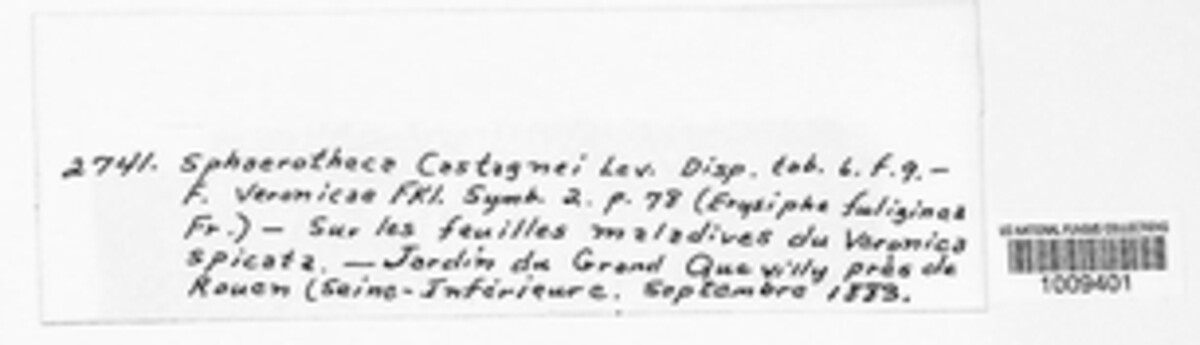 2741. Sphaerotheca Castagnei Lev. Disp. tab. 6. f. 9. —
f. Veronicae FKl. Symb. 2. p. 78 (Erysiphe fuliginea
Fr.) — Sur les feuilles maladives du Veronica
spicata. — Jardin du Grand Quevilly près de
Rouen (Seine-Inférieure. Septembre 1883.
US NATIONAL FUNGUS COLLECTIONS
1009401